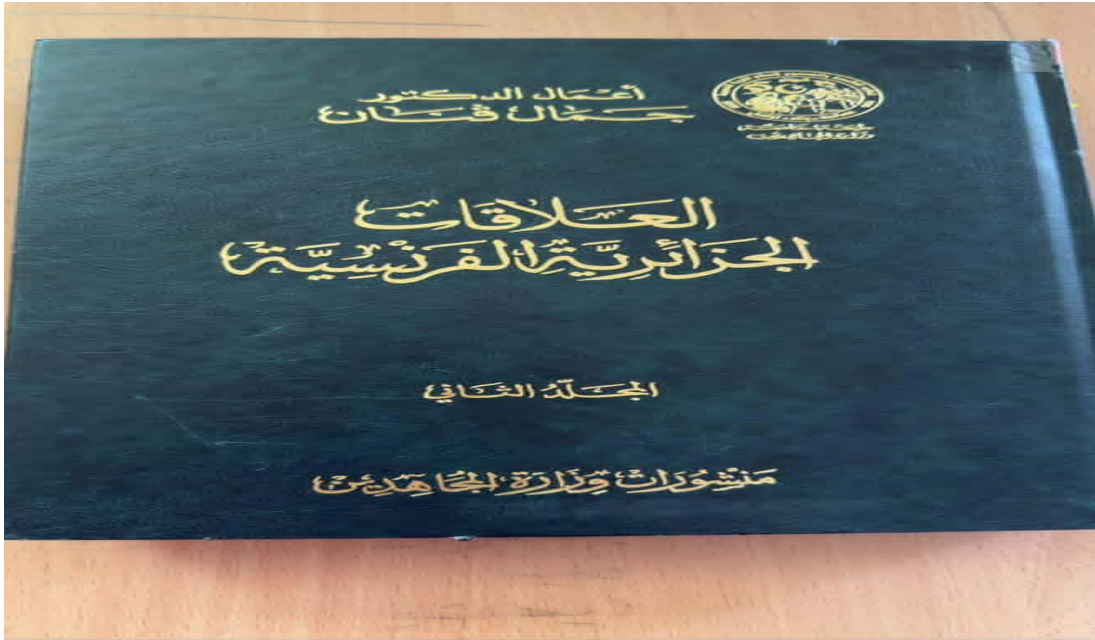 أعمال الدكتور
جمال قنان
العلاقات
الجزائرية الفرنسيَّة
المجلّدُ الثاني
منشورات وزارة المجاهدين